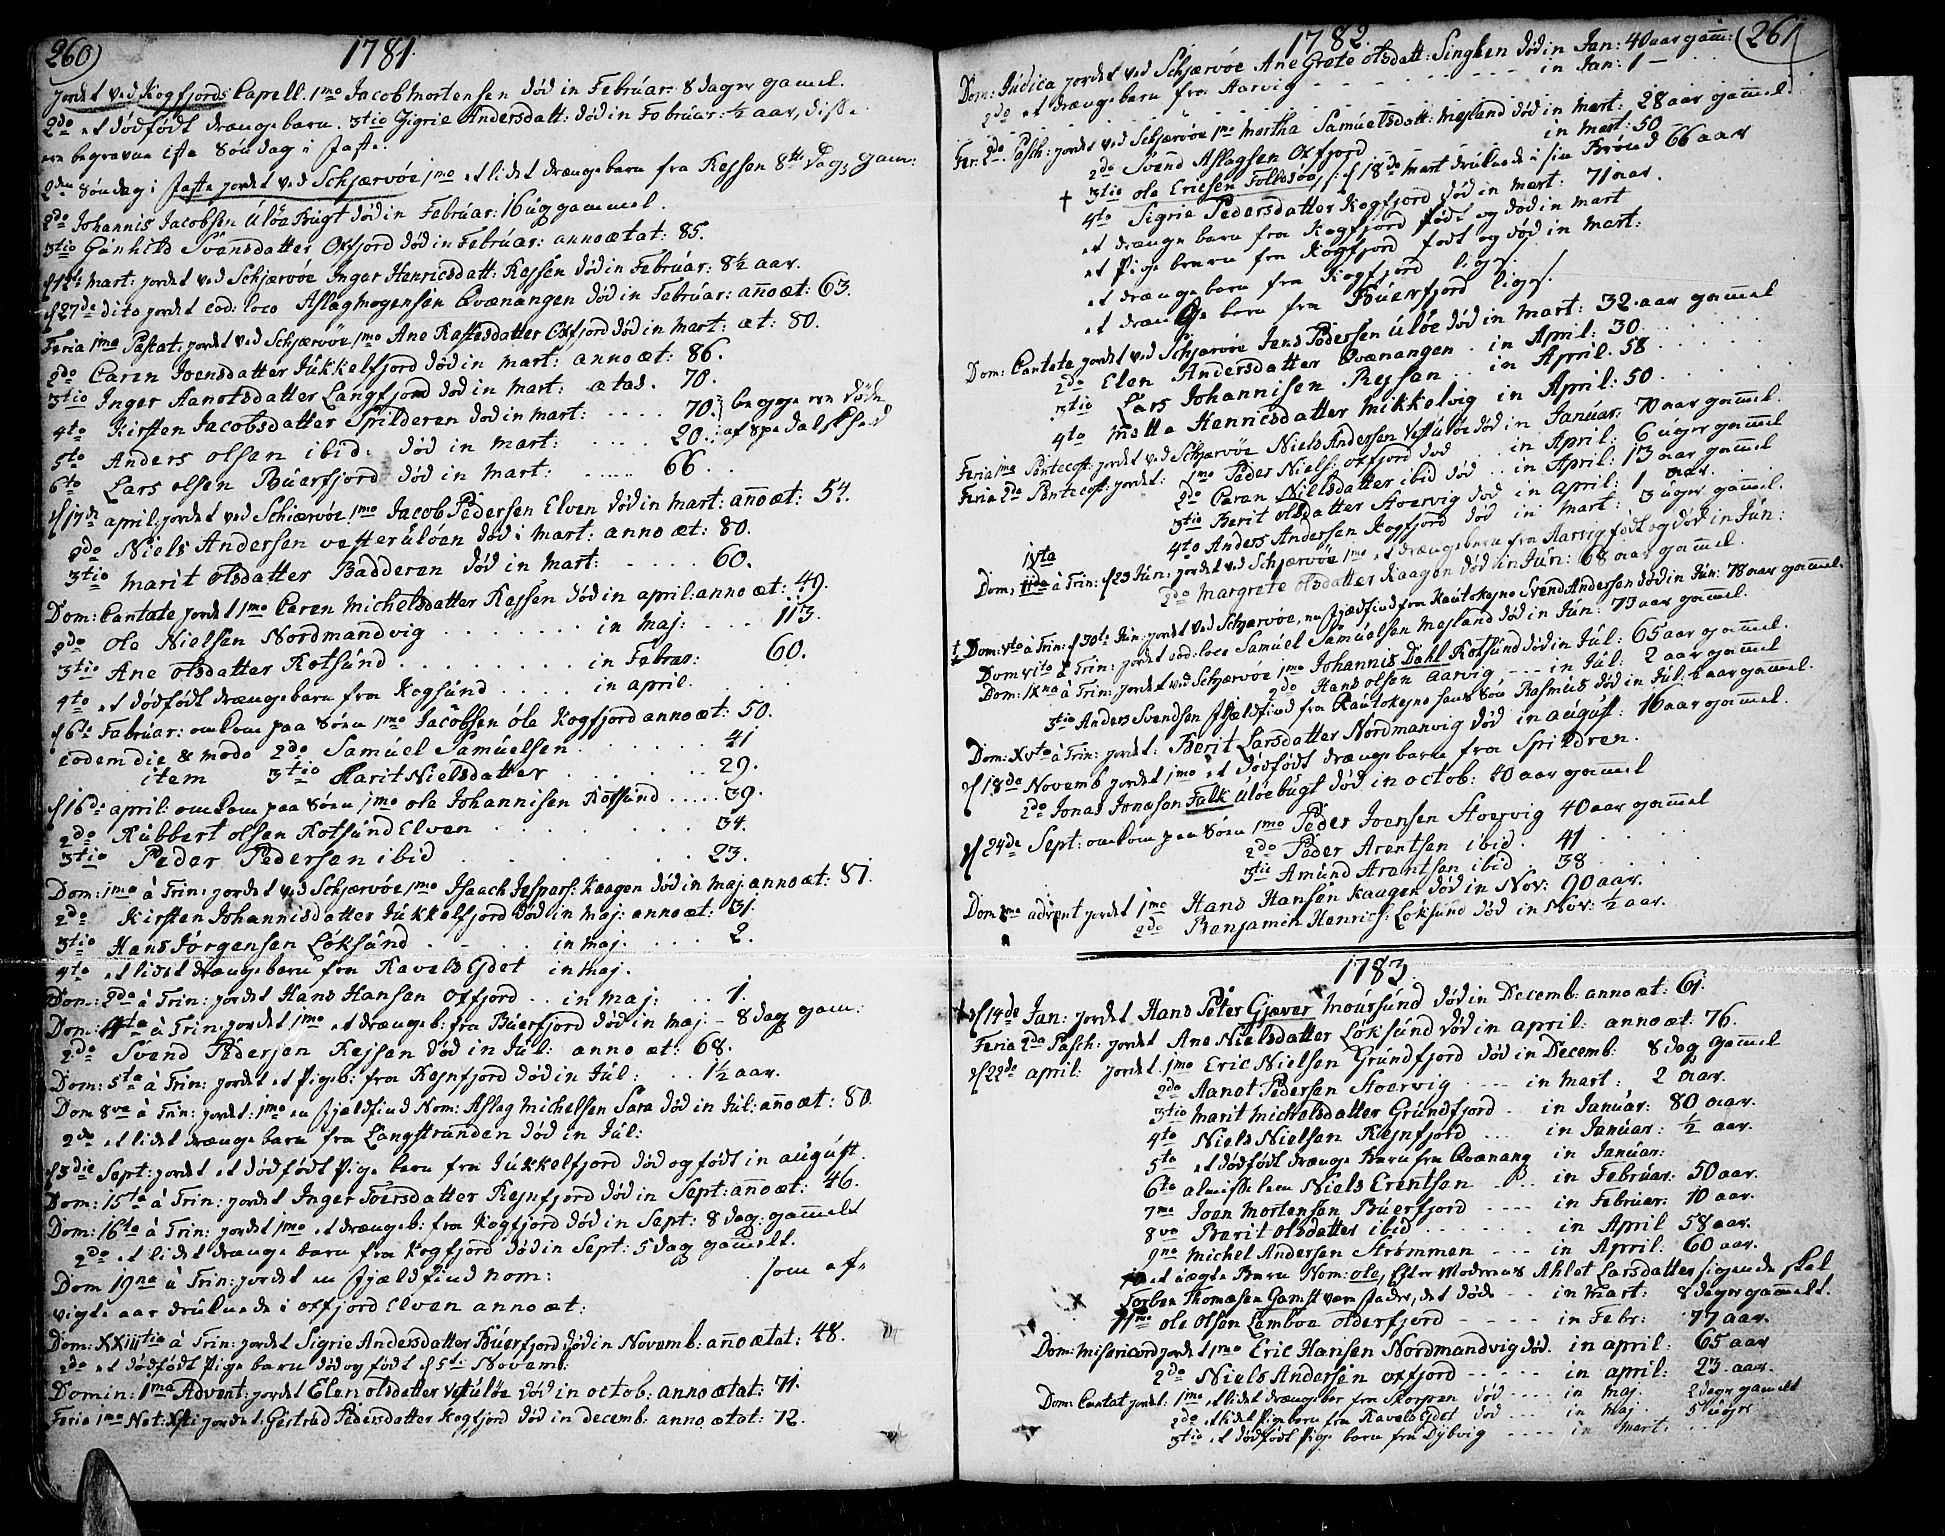 260
1781.
jordet ved Kogfjords Capell. 1mo Jacob Mortensen død in Februar: 8 dager gamel.
2do et dødfødt drængebarn. 3tio Gigrie Andersdatt: død in Februar: ½ aar, diße
ere begravne 1ste Søndag i Faste.
2den Søndag i Faste jordet ved Schjærvöe 1mo et lidet drængebarn fra Rejsen 8te Dags gam:
2do Johannis Jacobsen Ulöe Bugt død in Februar: 16 ug gammel.
3tio Gunhild Svensdatter Oxfjord død in Februar: anno ætat: 85.
d 12te Mart: jordet ved Schjærvöe Inger Henricsdatt: Rejsen død in Februar: 8½ aar.
d 27de dito jordet eod: loco Aslag Mogensen Qvænangen død in Februar: anno æt: 63.
Feria 1ma Pascat: jordet ved Schjærvöe 1mo Ane Rastesdatter Oxfjord død in Mart: æt: 80.
2do Caren Joensdatter Jükkelfjord død in Mart: anno æt: 86.
3tio Inger Aanotsdatter Langfjord død in Mart: ætat. 70.
4to Kirsten Jacobsdatter Spilderen død in Mart: .... 70. begge ere døde
5to Anders Olsen ibid. død in Mart: .... 20. af Spedalskhed
6to Lars Olsen Büerfjord død in Mart: ..... 66.
d 17de april: jordet ved Schiærvöe 1mo Jacob Pedersen Elven død in Mart: anno æt: 54.
2do Niels Andersen vesterulöen død i Mart: anno æt: 80.
3tio Marit Olsdatter Badderen død in Mart: .... 60.
Dom: Cantate jordet 1mo Caren Michelsdatter Rejsen død in april: anno æt: 49.
2do Ole Nielsen Nordmandvig ....... in Maj: .... 113.
3tio Ane Olsdatter Rotsünd ........ in Febrar: 60.
4to et dødfødt drængebarn fra Kogsünd ..... in april.
d 6te Februar: omkom paa Søen 1mo Jacobsen Ole Kogfjord anno æt: 50.
eodem die & modo 2do Samuel Samüelsen ...... 41
item 3tio Marit Nielsdatter ....... 29.
d 16de april: omkom paa Søen 1mo Ole Johannisen Rotsünd ..... 39.
2do Rubbert Olsen Rotsünd Elven ........ 34.
3tio Peder Pedersen ibid ......... 23.
Dom: 1ma à Trin: jordet ved Schjærvöe 1mo Isaach Jespers: Kaagen død in Maj. anno æt: 81.
2do Kirsten Johannisdatter Jükkelfjord død in Maj: anno æt: 31.
3tio Hans Jörgensen Löksünd .... in Maj. .... 2.
4to et lidet drængebarn fra Ravels Ejdet in Maj.
Dom: 2da à Trin: jordet Hans Hansen Oxfjord .. in Maj: .. 1.
Dom: 4ta à Trin: jordet 1mo et drængeb: fra Büerfjord død in Maj – 8 dag gam:
2do Svend Pedersen Rejsen død in Jul: anno æt: 68.
Dom: 5ta à Trin: jordet et Pigeb: fra Rejnfjord død in Jul: ... 1½ aar.
Dom 8va à Trin: jordet: 1mo en fjældfind Nom: Aslag Michelsen Sara død in Jul: anno æt: 80.
2do et lidet drænge barn fra Langstranden død in Jul:
d 3die Sept: jordet et dødfødt Pige barn fra Jükkelfjord død og født in august.
Dom: 15ta à Trin: jordet Inger Toersdatter Rejnfjord død in Sept: anno æt: 46.
Dom: 16ta à Trin: jordet 1mo et drængeb: fra Kogfjord død in Sept: 8 dag: gamelt
2do et lidet drænge barn fra Kogfjord død in Sept: 5 dag gamelt.
Dom 19na à Trin: jordet en fjældfind nom: . som af
vigte aar druknede i Oxfjord Elven anno æt:
Dom: XXIIItia à Trin: jordet Sigrie Andersdatter Büerfjord død in Novemb: anno ætat: 48.
2do et dødfødt Pige barn død og født d 5te Novemb:
Domin: 1ma Advent: jordet Elen Olsdatter Vestulöe død in octob: anno ætat: 71.
Feria 1ma Nat: Xsti jordet: Giertrud Pedersdatter Kogfjord død in decemb: anno ætat: 72.
261
1782.
Dom: Judica jordet ved Schjærvöe Ane Grete Olsdatt: Singlen død in Jan: 40 aar gam:
2do et drænge barn fra Aarvig ........ in Jan: 1 –
Fer: 2da Pasch: jordet ved Schjærvöe 1mo Martha Samuelsdatt: Mejland død in Mart: 28 aar gamel.
2do Svend Aslagsen Oxfjord ...... in Mart: 50
† 3tio Ole Ericsen Folkesøe, d 18de Mart druknede i sin Brönd 66 aar
4to Sigrie Pedersdatter Kogfjord død in Mart: 71 aar.
et drænge barn fra Kogfjord født og død in Mart
et Pige barn fra Kogfjord født og død in Mart:
et drænge barn fra Kogfjord lig:
et drænge barn fra Büerfjord lig:
Dom: Cantate jordet ved Schjærvöe Jens Pedersen Ulöe død in Mart: 32 aar gamel
2do Elen Andersdatter Qvænangen . in April: 30.
3tio Lars Johannisen Rejsen .. in April: 58
4to Mette Henricsdatter Mikkelvig in April: 50.
Feria 1ma Pentecost: jordet ved Schjærvöe Niels Andersen Vestulöe død in Januar: 70 aar gamel.
Feria 2da Pentecost: jordet: 1mo Peder Niels: Oxfjord død .. in April: 6 uger gamel
2do Caren Nielsdatter ibid død .. in April: 13 aar gamel
3tio Berit Olsdatter Stoervig død in April: 1 aar.
4to Anders Andersen Kogfjord død in Mart: 3 uger gamel.
Dom: IVta à Trin: d 23 Jun: jordet ved Schjærvöe 1mo et drængebarn fra Aarvig født og død in Jün:
2do Margrete Olsdatter Kaagen død in Jün: 68 aar gamel.
† Dom: Vta à Trin: d 30te Jün: jordet ved Schjærvöe, en fjældfind fra Kautokejno Svend Andersen død in Jün: 78 aar gamel.
Dom VIta à Trin: jordet eod: loco Samuel Samuelsen Mejland død in Jün: 73 aar gamel.
Dom: IXna à Trin: jordet ved Schjærvöe 1mo Johannis Dahl Rotsünd død in Jül: 65 aar gamel.
2do Hans Olsen Aarvig ... in Jül: 2 aar gamel
3tio Anders Svendsen fjældfind fra Kautokejno hans Søn Rasmus død in Jül: ½ aar gamel.
Dom: XVta à Trin: jordet: Berit Larsdatter Nordmanvig død in august: 16 aar gamel.
d 18de Novemb jordet 1mo et dødfødt drængebarn fra Spildren.
2do Jonas Jonasen Falk Ulöebugt død in octob: 10 aar gamel
d 24de Sept: omkom paa Søen 1mo Peder Joensen Stoervig 40 aar gamel
2do Peder Arentsen ibid. 41
3tio Amund Arentsen ibid . 38
Dom 1ma advent jordet 1mo Hans Hansen Kaagen død in Nov: 90 aar.
2do Benjamin Henrics: Löksünd død in Nov: ½ aar.
1783.
d 14de Jan: jordet Hans Peter Gjæver Moursund død in Decemb: anno æt: 61.
Feria 2da Pasch: jordet Ane Nielsdatter Löksünd død in april: anno æt: 76.
d 22de april: jordet 1mo Eric Nielsen Grundfjord død in Decemb: 8 dag gamel
2do Aanet Pedersen Stoervig .... in Mart: 2 aar.
3tio Marit Michelsdatter Grundfjord .. in Januar: 80 aar.
4to Niels Nielsen Rejnfjord .... in Januar: ½ aar.
5to et dødfødt drænge Barn fra Qvænang in Januar:
6to almisselem Niels Erentsen .. in Februar: 50 aar.
7mo Joen Mortensen Büerfjord .... in Februar: 10 aar.
8vo Berit Olsdatter ibid ...... in April 58 aar.
9no Michel Andersen Strömmen ... in April: 60 aar.
10 et uægte Barn Nom: Ole, efter Moderens Ahlet Larsdatters sigende skal
x Torben Thomæsen Gamst være fader, det døde .. in Mart: 8 dager gamelt.
11mo Ole Olsen Lemboe Olderfjord .... in Febr: 77 aar.
Dom: Misericord jordet 1mo Eric Hansen Nordmandvig død. in april: 65 aar
2do Niels Andersen Oxfjord ..... in april: 23 aar.
Dom: Cantat jordet: 1mo et lidet drængebar fra Skorpen død .... in Maj. 2 dage gamelt
2do et lidet Pigebarn fra Ravels Ejdet død .... in Maj. 5 uger
3tio et dødfødt Pige barn fra Dybvig ..... in Mart.